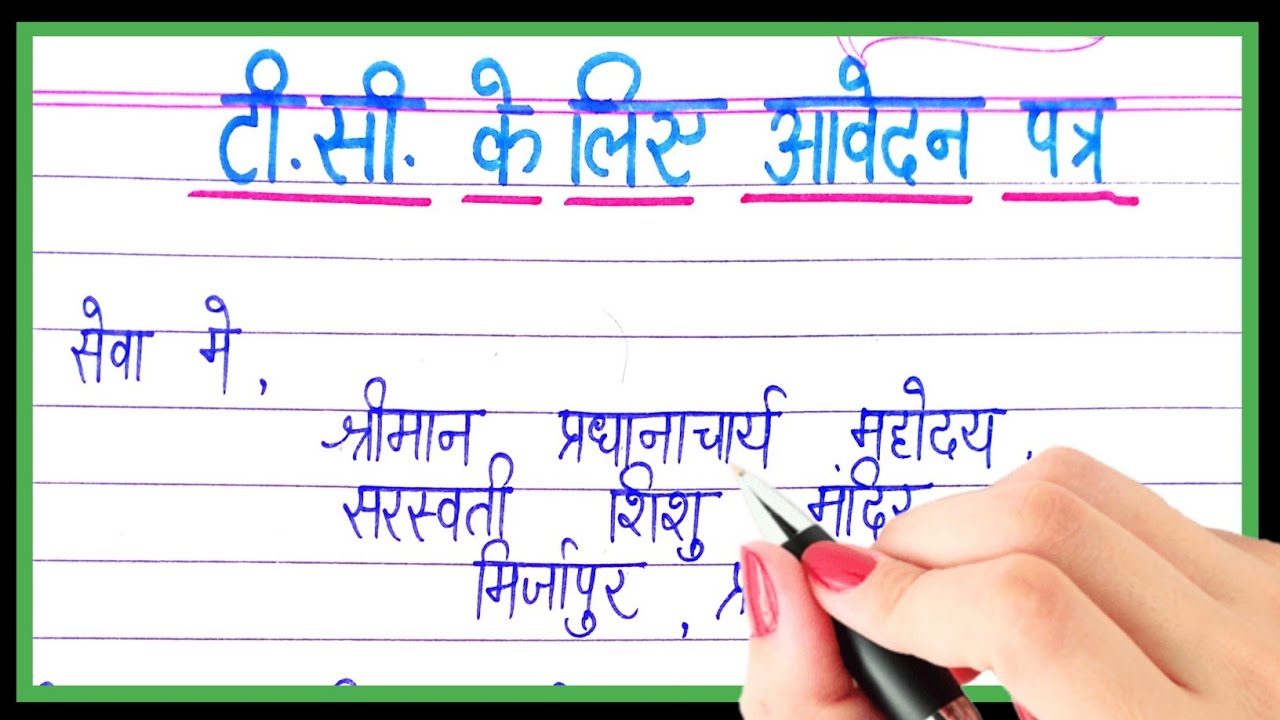 टी.सी. के लिए आवेदन पत्र
सेवा मे,
श्रीमान प्रधानाचार्य महोदय,
सरस्वती शिशु मंदिर
मिर्जापुर,